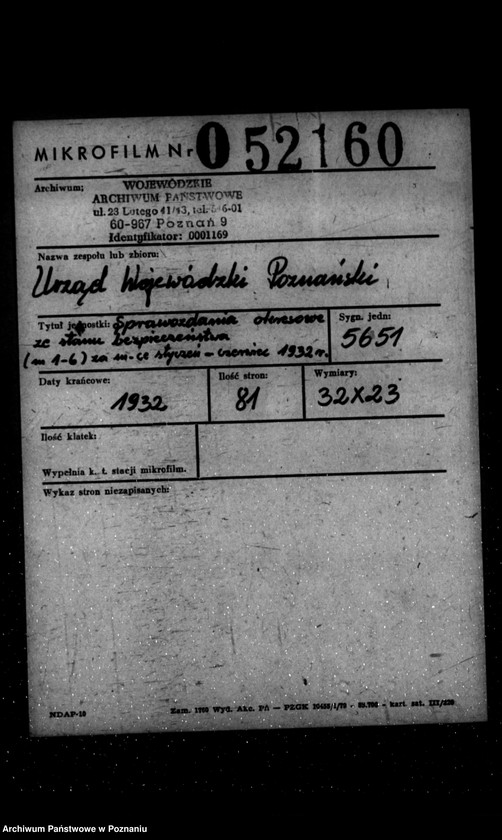 MIKROFILM Nr 052160
Archiwum: WOJEWÓDZKIE
ARCHIWUM PAŃSTWOWE
ul. 23 Lutego 41/43, tel. 6-01
60-967 Poznań 9
Identyfikator: 0001169
Nazwa zespołu lub zbioru:
Urząd Wojewódzki Poznański
Tytuł jednostki: Sprawozdania okresowe
ze stanu bezpieczeństwa
(nr 1-6) za m-ce styczeń - czerwiec 1932 r.
Sygn. jedn:
5651
Daty krańcowe:
1932
Ilość stron:
81
Wymiary:
32x23
Ilość klatek:
Wypełnia k. t. stacji mikrofilm.
Wykaz stron niezapisanych:
NDAP-10
Zam. Wyd. Akc. PŃ — PZGK kart. sat. III/
Archiwum Państwowe w Poznaniu